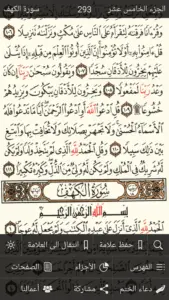 الجزء الخامس عشر 293 سورة الكهف
وَقُرْءَانًا فَرَقْنَٰهُ لِتَقْرَأَهُۥ عَلَى ٱلنَّاسِ عَلَىٰ مُكْثٍ وَنَزَّلْنَٰهُ تَنزِيلًا
۝١٠٦ قُلْ ءَامِنُوا۟ بِهِۦٓ أَوْ لَا تُؤْمِنُوٓا۟ إِنَّ ٱلَّذِينَ أُوتُوا۟ ٱلْعِلْمَ مِن قَبْلِهِۦٓ إِذَا يُتْلَىٰ
عَلَيْهِمْ يَخِرُّونَ لِلْأَذْقَانِ سُجَّدًا ۝١٠٧ وَيَقُولُونَ سُبْحَٰنَ رَبِّنَآ إِن كَانَ
وَعْدُ رَبِّنَا لَمَفْعُولًا ۝١٠٨ وَيَخِرُّونَ لِلْأَذْقَانِ يَبْكُونَ وَيَزِيدُهُمْ خُشُوعًا
۝١٠٩ قُلِ ٱدْعُوا۟ ٱللَّهَ أَوِ ٱدْعُوا۟ ٱلرَّحْمَٰنَ أَيًّا مَّا تَدْعُوا۟ فَلَهُ
ٱلْأَسْمَآءُ ٱلْحُسْنَىٰ وَلَا تَجْهَرْ بِصَلَاتِكَ وَلَا تُخَافِتْ بِهَا وَٱبْتَغِ
بَيْنَ ذَٰلِكَ سَبِيلًا ۝١١٠ وَقُلِ ٱلْحَمْدُ لِلَّهِ ٱلَّذِى لَمْ يَتَّخِذْ وَلَدًا وَلَمْ يَكُن
لَّهُۥ شَرِيكٌ فِى ٱلْمُلْكِ وَلَمْ يَكُن لَّهُۥ وَلِىٌّ مِّنَ ٱلذُّلِّ وَكَبِّرْهُ تَكْبِيرًۢا ۝١١١
سُورَةُ الكَهْفِ
بِسْمِ ٱللَّهِ ٱلرَّحْمَٰنِ ٱلرَّحِيمِ
ٱلْحَمْدُ لِلَّهِ ٱلَّذِىٓ أَنزَلَ عَلَىٰ عَبْدِهِ ٱلْكِتَٰبَ وَلَمْ يَجْعَل لَّهُۥ
حفظ علامة انتقال الى العلامة
الفهرس الأجزاء الصفحات
دعاء الختم مشاركة أعمالنا